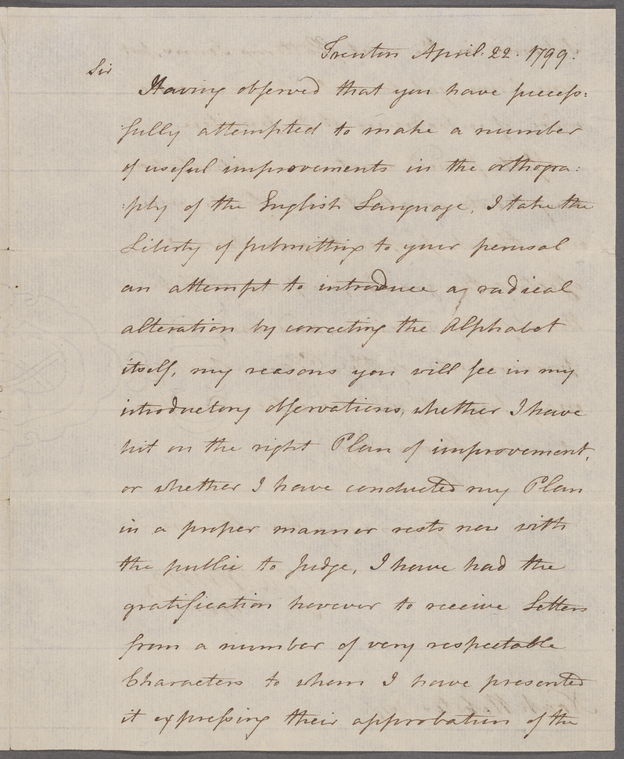 Trenton April. 22. 1799.
Sir
Having observed that you have success:
fully attempted to make a number
of useful improvements in the orthogra:
:phy of the English Language, I take the
Liberty of submitting to your perusal
an attempt to introduce a radical
alteration by correcting the Alphabet
itself, my reasons you will see in my
introductory observations, whether I have
hit on the right Plan of improvement,
or whether I have conducted my Plan
in a proper manner rests now with
the public to Judge, I have had the
gratification however to receive Letters
from a number of very respectable
Characters to whom I have presented
it expressing their approbation of the